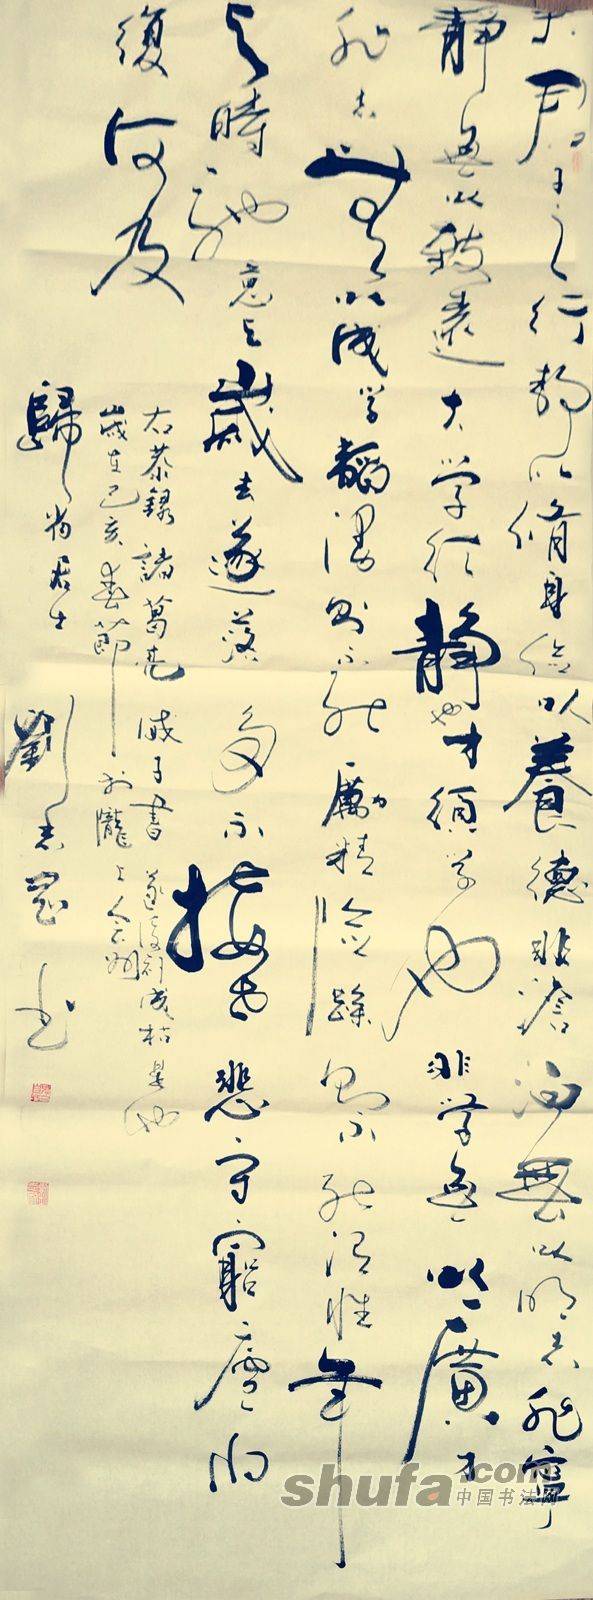 夫君子之行静以脩身儉以養德非澹泊無以明志非寧
靜無以致遠夫學須靜也才須學也非學無以廣才
非志無以成學韜漫則不能勵精險躁則不能冶性年
与時馳意与歲去遂落多不接世悲守窮廬将
復何及
右恭録諸葛亮誡子書遂後衍成枯是也
歲在己亥春節於隴上會州
歸尚居士 劉志
shufa.com
中国书法网